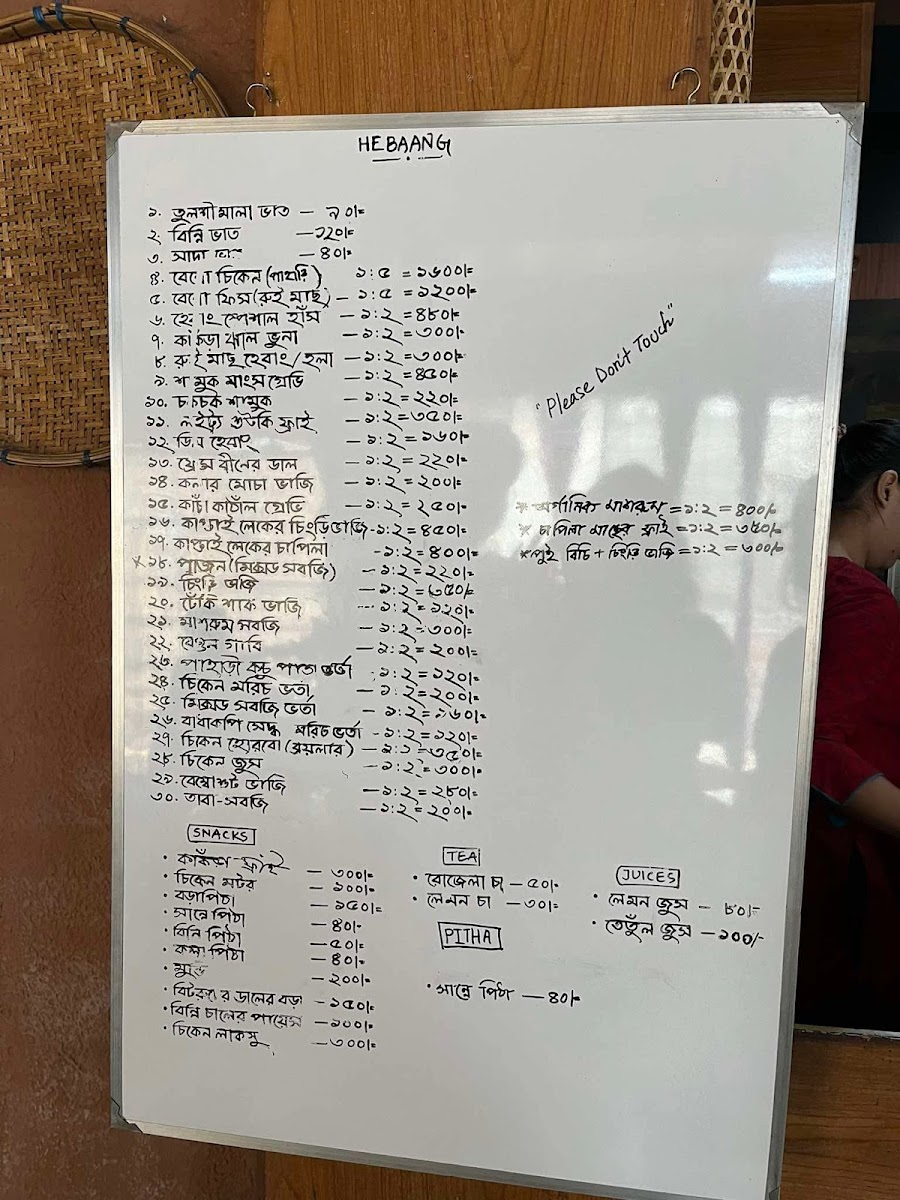 HEBAANG
১. তুলশী মালা ভাত — ৯০/=
২. বিন্নি ভাত — ১২০/=
৩. সাদা — ৪০/=
৪. চিকেন (পাহাড়ি) ১:৫ = ১৬০০/=
৫. ফিস (রুই মাছ) — ১:৫ = ১২০০/=
৬. স্পেশাল হাঁস — ১:২ = ৪৮০/=
৭. ঝাল ভুনা — ১:২ = ৩০০/=
৮. রুই মাছ হেবাং/হলা — ১:২ = ৩০০/=
৯. শামুক মাংস গ্রেভি — ১:২ = ৪৫০/=
১০. শামুক — ১:২ = ২২০/=
১১. শুটকি ফ্রাই — ১:২ = ৩৫০/=
১২. ডিম হেবাং — ১:২ = ১৬০/=
১৩. বীনের ডাল — ১:২ = ২২০/=
১৪. কলার মোচা ভাজি — ১:২ = ২০০/=
১৫. কাঁচা কাঠাল গ্রেভি — ১:২ = ২৫০/=
১৬. কাপ্তাই লেকের চিংড়ি ভাজি - ১:২ = ৪৫০/=
১৭. কাপ্তাই লেকের চাপিলা - ১:২ = ৪০০/=
* ১৮. পাজন (মিক্সড সবজি) — ১:২ = ২২০/=
১৯. চিংড়ি ভাজি — ১:২ = ৩৫০/=
২০. ঢেঁকি শাক ভাজি — ১:২ = ১২০/=
২১. মাশরুম সবজি — ১:২ = ৩০০/=
২২. বেগুন গাবি — ১:২ = ২০০/=
২৩. পাহাড়ী কচু পাতা ভর্তা — ১:২ = ১২০/=
২৪. চিকেন মরিচ ভর্তা — ১:২ = ২০০/=
২৫. মিক্সড সবজি ভর্তা — ১:২ = ১৬০/=
২৬. বাধাকপি সেদ্ধ মরিচ ভর্তা - ১:২ = ১২০/=
২৭. চিকেন হোরবো (ব্রয়লার) — ১:২ = ৩৫০/=
২৮. চিকেন জুম — ১:২ = ৩০০/=
২৯. বেম্বোশুট ভাজি — ১:২ = ২৮০/=
৩০. তাবা-সবজি — ১:২ = ২০০/=
"Please Don't Touch"
* অর্গানিক মাশরুম = ১:২ = ৪০০/=
* চাপিলা মাছের ফ্রাই = ১:২ = ৩৫০/=
* পুই বিচি + চিংড়ি ভাজি = ১:২ = ৩০০/=
SNACKS
• কাকঁড়া ফ্রাই — ৩০০/=
• চিকেন মটর — ১০০/=
• বড়াপিঠা — ১৫০/=
• সান্নে পিঠা — ৪০/=
• বিন্নি পিঠা — ৫০/=
• কলা পিঠা — ৪০/=
• — ২০০/=
• ডালের বড়া — ১৫০/=
• বিন্নি চালের পায়েস — ১০০/=
• চিকেন লাকসু — ৩০০/=
TEA
• রোজেলা চা — ৫০/=
• লেমন চা — ৩০/=
PITHA
• সান্নে পিঠা — ৪০/=
JUICES
• লেমন জুস — ৮০/=
• তেঁতুল জুস — ১০০/=